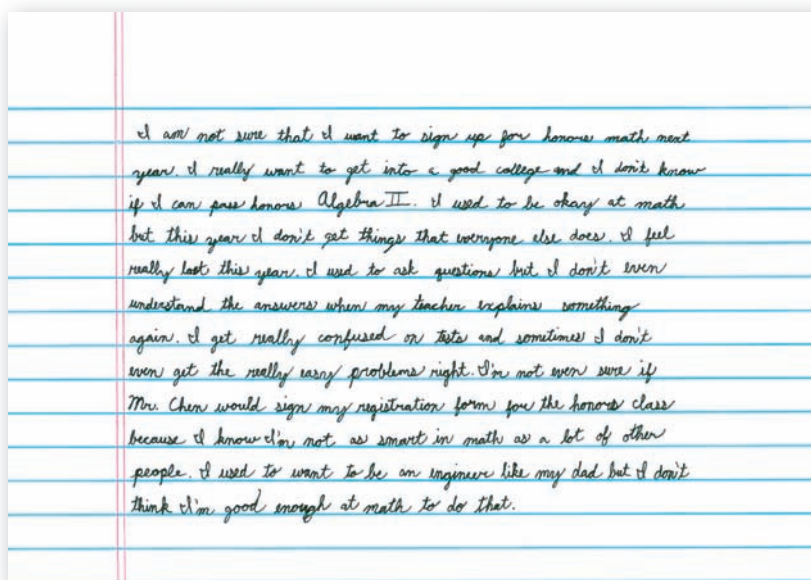 I am not sure that I want to sign up for honors math next
year. I really want to get into a good college and I don't know
if I can pass honors Algebra II. I used to be okay at math
but this year I don't get things that everyone else does. I feel
really lost this year. I used to ask questions but I don't even
understand the answers when my teacher explains something
again. I get really confused on tests and sometimes I don't
even get the really easy problems right. I'm not even sure if
Mr. Chen would sign my registration form for the honors class
because I know I'm not as smart in math as a lot of other
people. I used to want to be an engineer like my dad but I don't
think I'm good enough at math to do that.